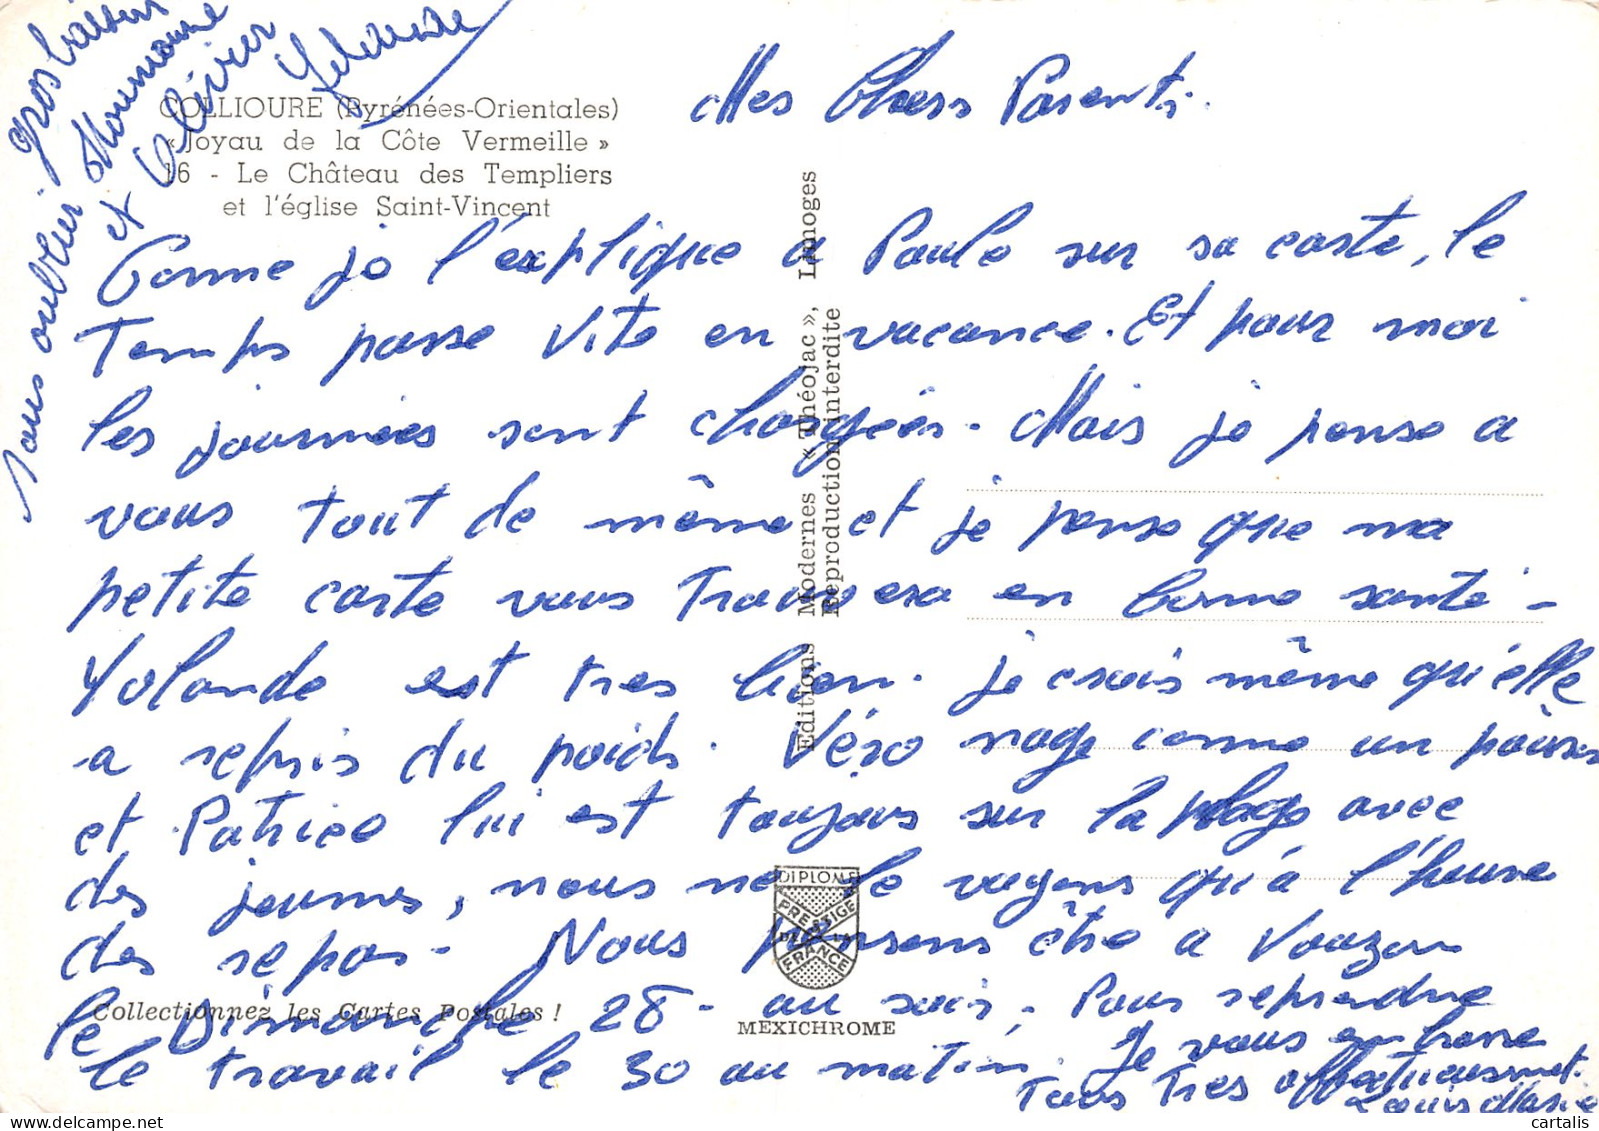 COLLIOURE (Pyrénées-Orientales)
« Joyau de la Côte Vermeille »
16 - Le Château des Templiers
et l'église Saint-Vincent
Mes Chers Parents.
Comme je l'explique a Paule sur sa carte, le
Temps passe Vite en vacance. Et pour moi
les journées sont chargées. Mais je pense a
vous tout de même et je pense que ma
petite carte vous Trouvera en bonne santé -
Yolande est tres bien. je crois même qu'elle
a repris du poids. Véro nage comme un poisson
et Patrice lui est toujours sur la plage avec
des jeunes, nous ne le voyons qu'à l'heure
des repas - Nous pensons être a Vouzon
le Dimanche 28 - au soir, Pour reprendre
le travail le 30 au matin. Je vous embrasse
Tous Tres affectueusement.
Louis Marie
Sans oublier
gros baisers
Moumoune
et Olivier
Yolande
Editions Modernes « Théojac », Limoges
Reproduction interdite
DIPLOME
PRESTIGE
DE LA
FRANCE
MEXICHROME
Collectionnez les Cartes Postales !
cartalis